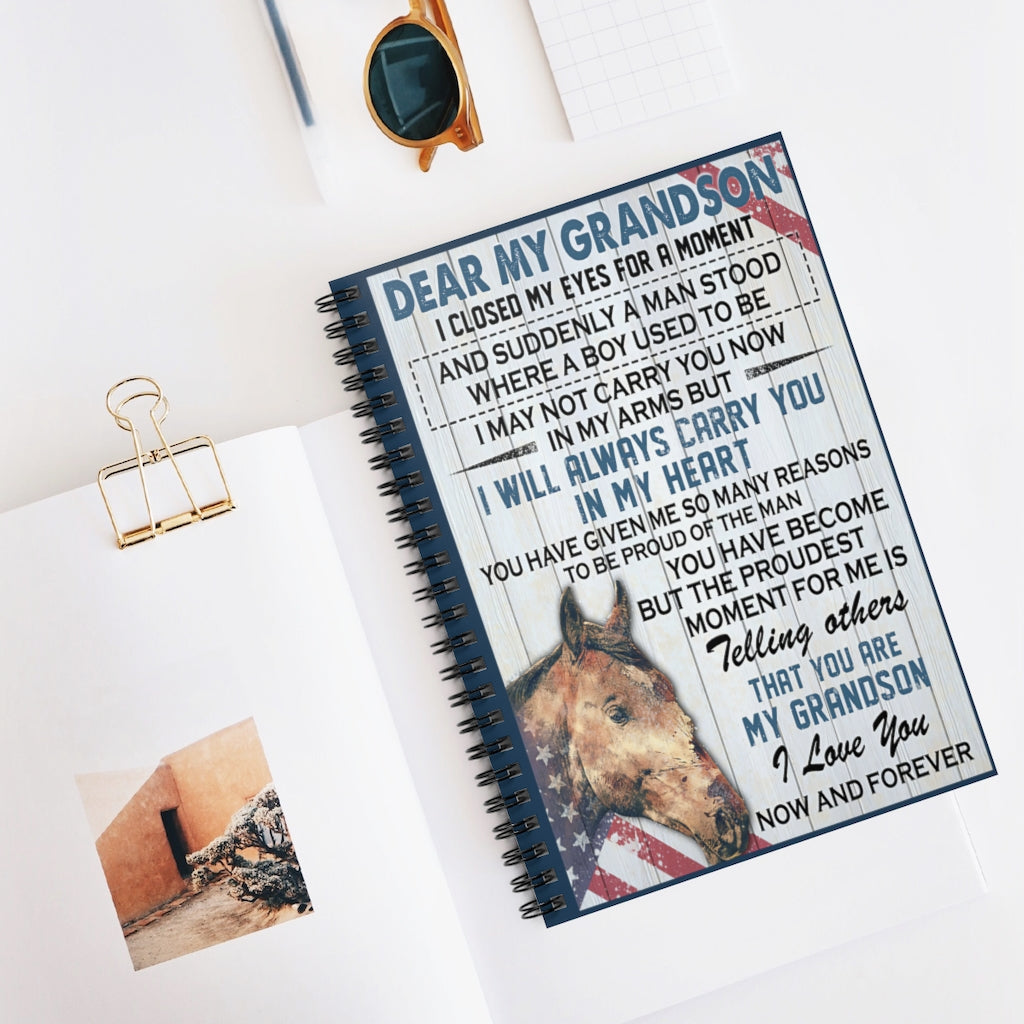 DEAR MY GRANDSON
I CLOSED MY EYES FOR A MOMENT
AND SUDDENLY A MAN STOOD
WHERE A BOY USED TO BE
I MAY NOT CARRY YOU NOW
IN MY ARMS BUT
I WILL ALWAYS CARRY YOU
IN MY HEART
YOU HAVE GIVEN ME SO MANY REASONS
TO BE PROUD OF THE MAN
YOU HAVE BECOME
BUT THE PROUDEST
MOMENT FOR ME IS
Telling others
THAT YOU ARE
MY GRANDSON
I Love You
NOW AND FOREVER